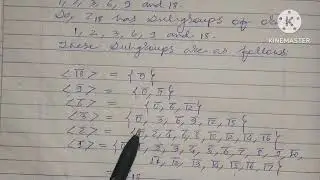 1, 2, 3, 6, 9 and 18.
So, Z18 has subgroups of or
1, 2, 3, 6, 9 and 18.
These subgroups are as follows
= { 0̄ }
<9̄> = { 0̄, 9̄ }
<6̄> = { 0̄, 6̄, 12 }
<3̄> = { 0̄, 3̄, 6̄, 9̄, 12, 15 }
<2̄> = 2̄, 4̄, 6̄, 8̄, 10, 12, 14, 16 }
= { 2̄, 3̄, 4̄, 5̄, 6̄, 7̄, 8̄, 9̄, 10,
12, 13, 14, 15, 16, 17 }